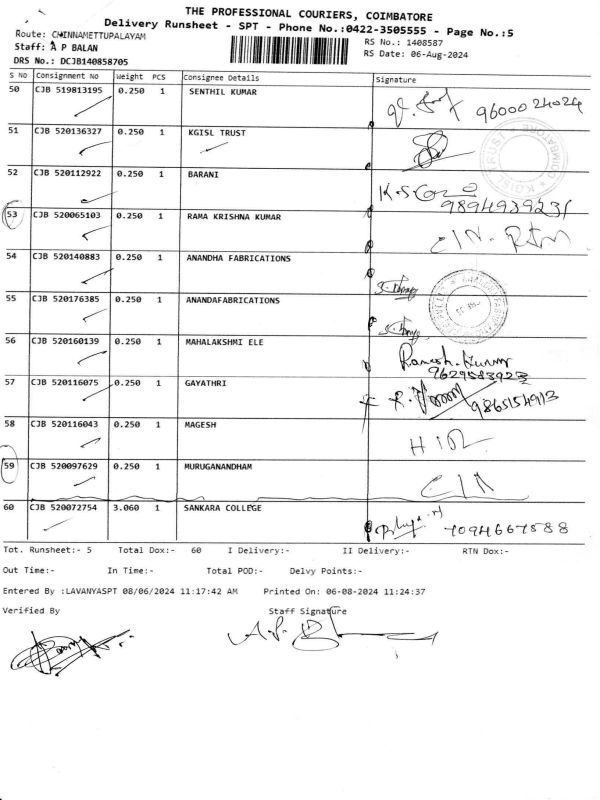 THE PROFESSIONAL COURIERS, COIMBATORE
Delivery Runsheet - SPT - Phone No.:0422-3505555 - Page No.:5
Route: CHINNAMETTUPALAYAM
RS No.: 1408587
Staff: A P BALAN
RS Date: 06-Aug-2024
DRS No.: DCJB140858705
S No Consignment No Weight PCS Consignee Details Signature
50 CJB 519813195 0.250 1 SENTHIL KUMAR 9600024024
51 CJB 520136327 0.250 1 KGISL TRUST
52 CJB 520112922 0.250 1 BARANI 9894939231
53 CJB 520065103 0.250 1 RAMA KRISHNA KUMAR
54 CJB 520140883 0.250 1 ANANDHA FABRICATIONS
55 CJB 520176385 0.250 1 ANANDAFABRICATIONS
56 CJB 520160139 0.250 1 MAHALAKSHMI ELE Ramesh.Kumar
9629583923
57 CJB 520116075 0.250 1 GAYATHRI 9865154913
58 CJB 520116043 0.250 1 MAGESH
59 CJB 520097629 0.250 1 MURUGANANDHAM
60 CJB 520072754 3.060 1 SANKARA COLLEGE 7094667588
Tot. Runsheet:- 5 Total Dox:- 60 I Delivery:- II Delivery:- RTN Dox:-
Out Time:- In Time:- Total POD:- Delvy Points:-
Entered By :LAVANYASPT 08/06/2024 11:17:42 AM Printed On: 06-08-2024 11:24:37
Verified By Staff Signature